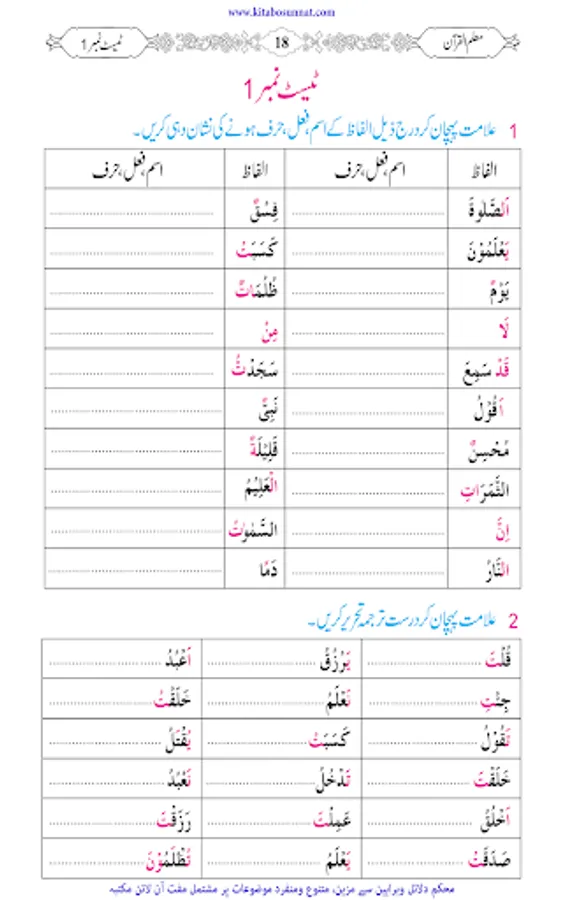 www.kitabosunnat.com
معلم القرآن 18 ٹیسٹ نمبر 1
ٹیسٹ نمبر 1
1 علامت پہچان کر درج ذیل الفاظ کے اسم، فعل، حرف ہونے کی نشان دہی کریں۔
الفاظ اسم، فعل، حرف الفاظ اسم، فعل، حرف
اَلصَّلٰوةَ ........ فِسْقٌ ........
يَعْلَمُوْنَ ........ كَسَبَتْ ........
يَوْمٌ ........ ظُلُمَاتٌ ........
لَا ........ مِنْ ........
قَدْ سَمِعَ ........ سَجَدْتُّ ........
اَقُوْلُ ........ نَبِىٌّ ........
مُحْسِنٌ ........ قَلِيْلَةٌ ........
الثَّمَرَاتِ ........ الْعَلِيْمُ ........
اِنَّ ........ السَّمٰوٰتُ ........
النَّارُ ........ دَمًا ........
2 علامت پہچان کر درست ترجمہ تحریر کریں۔
قُلْتَ ........ يَرْزُقُ ........ اَعْبُدُ ........
جِئْتِ ........ نَعْلَمُ ........ خَلَقْتُ ........
تَقُوْلُ ........ كَسَبَتْ ........ يُقْتَلُ ........
خَلَقْتَ ........ تَدْخُلُ ........ نَعْبُدُ ........
اَخْلُقُ ........ عَمِلْتَ ........ رَزَقْتَ ........
صَدَقْتَ ........ يَعْلَمُ ........ تُظْلَمُوْنَ ........
محکم دلائل وبراہین سے مزین، متنوع ومنفرد موضوعات پر مشتمل مفت آن لائن مکتبہ